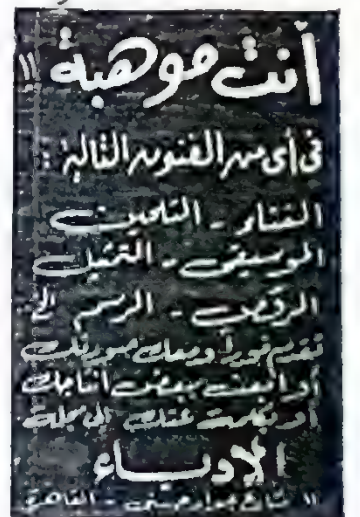 أنت موهبة !!
فى أى من الفنون التالية :
التلحين
الموسيقى - التمثيل
الرقص - الرسم الخ
تقدم فورا ومعك صورتك
أو ابعث ببعض انتاجك
أو بكلمة عنك إلى مجلة
الأدباء
١١ شارع جواد حسنى - القاهرة